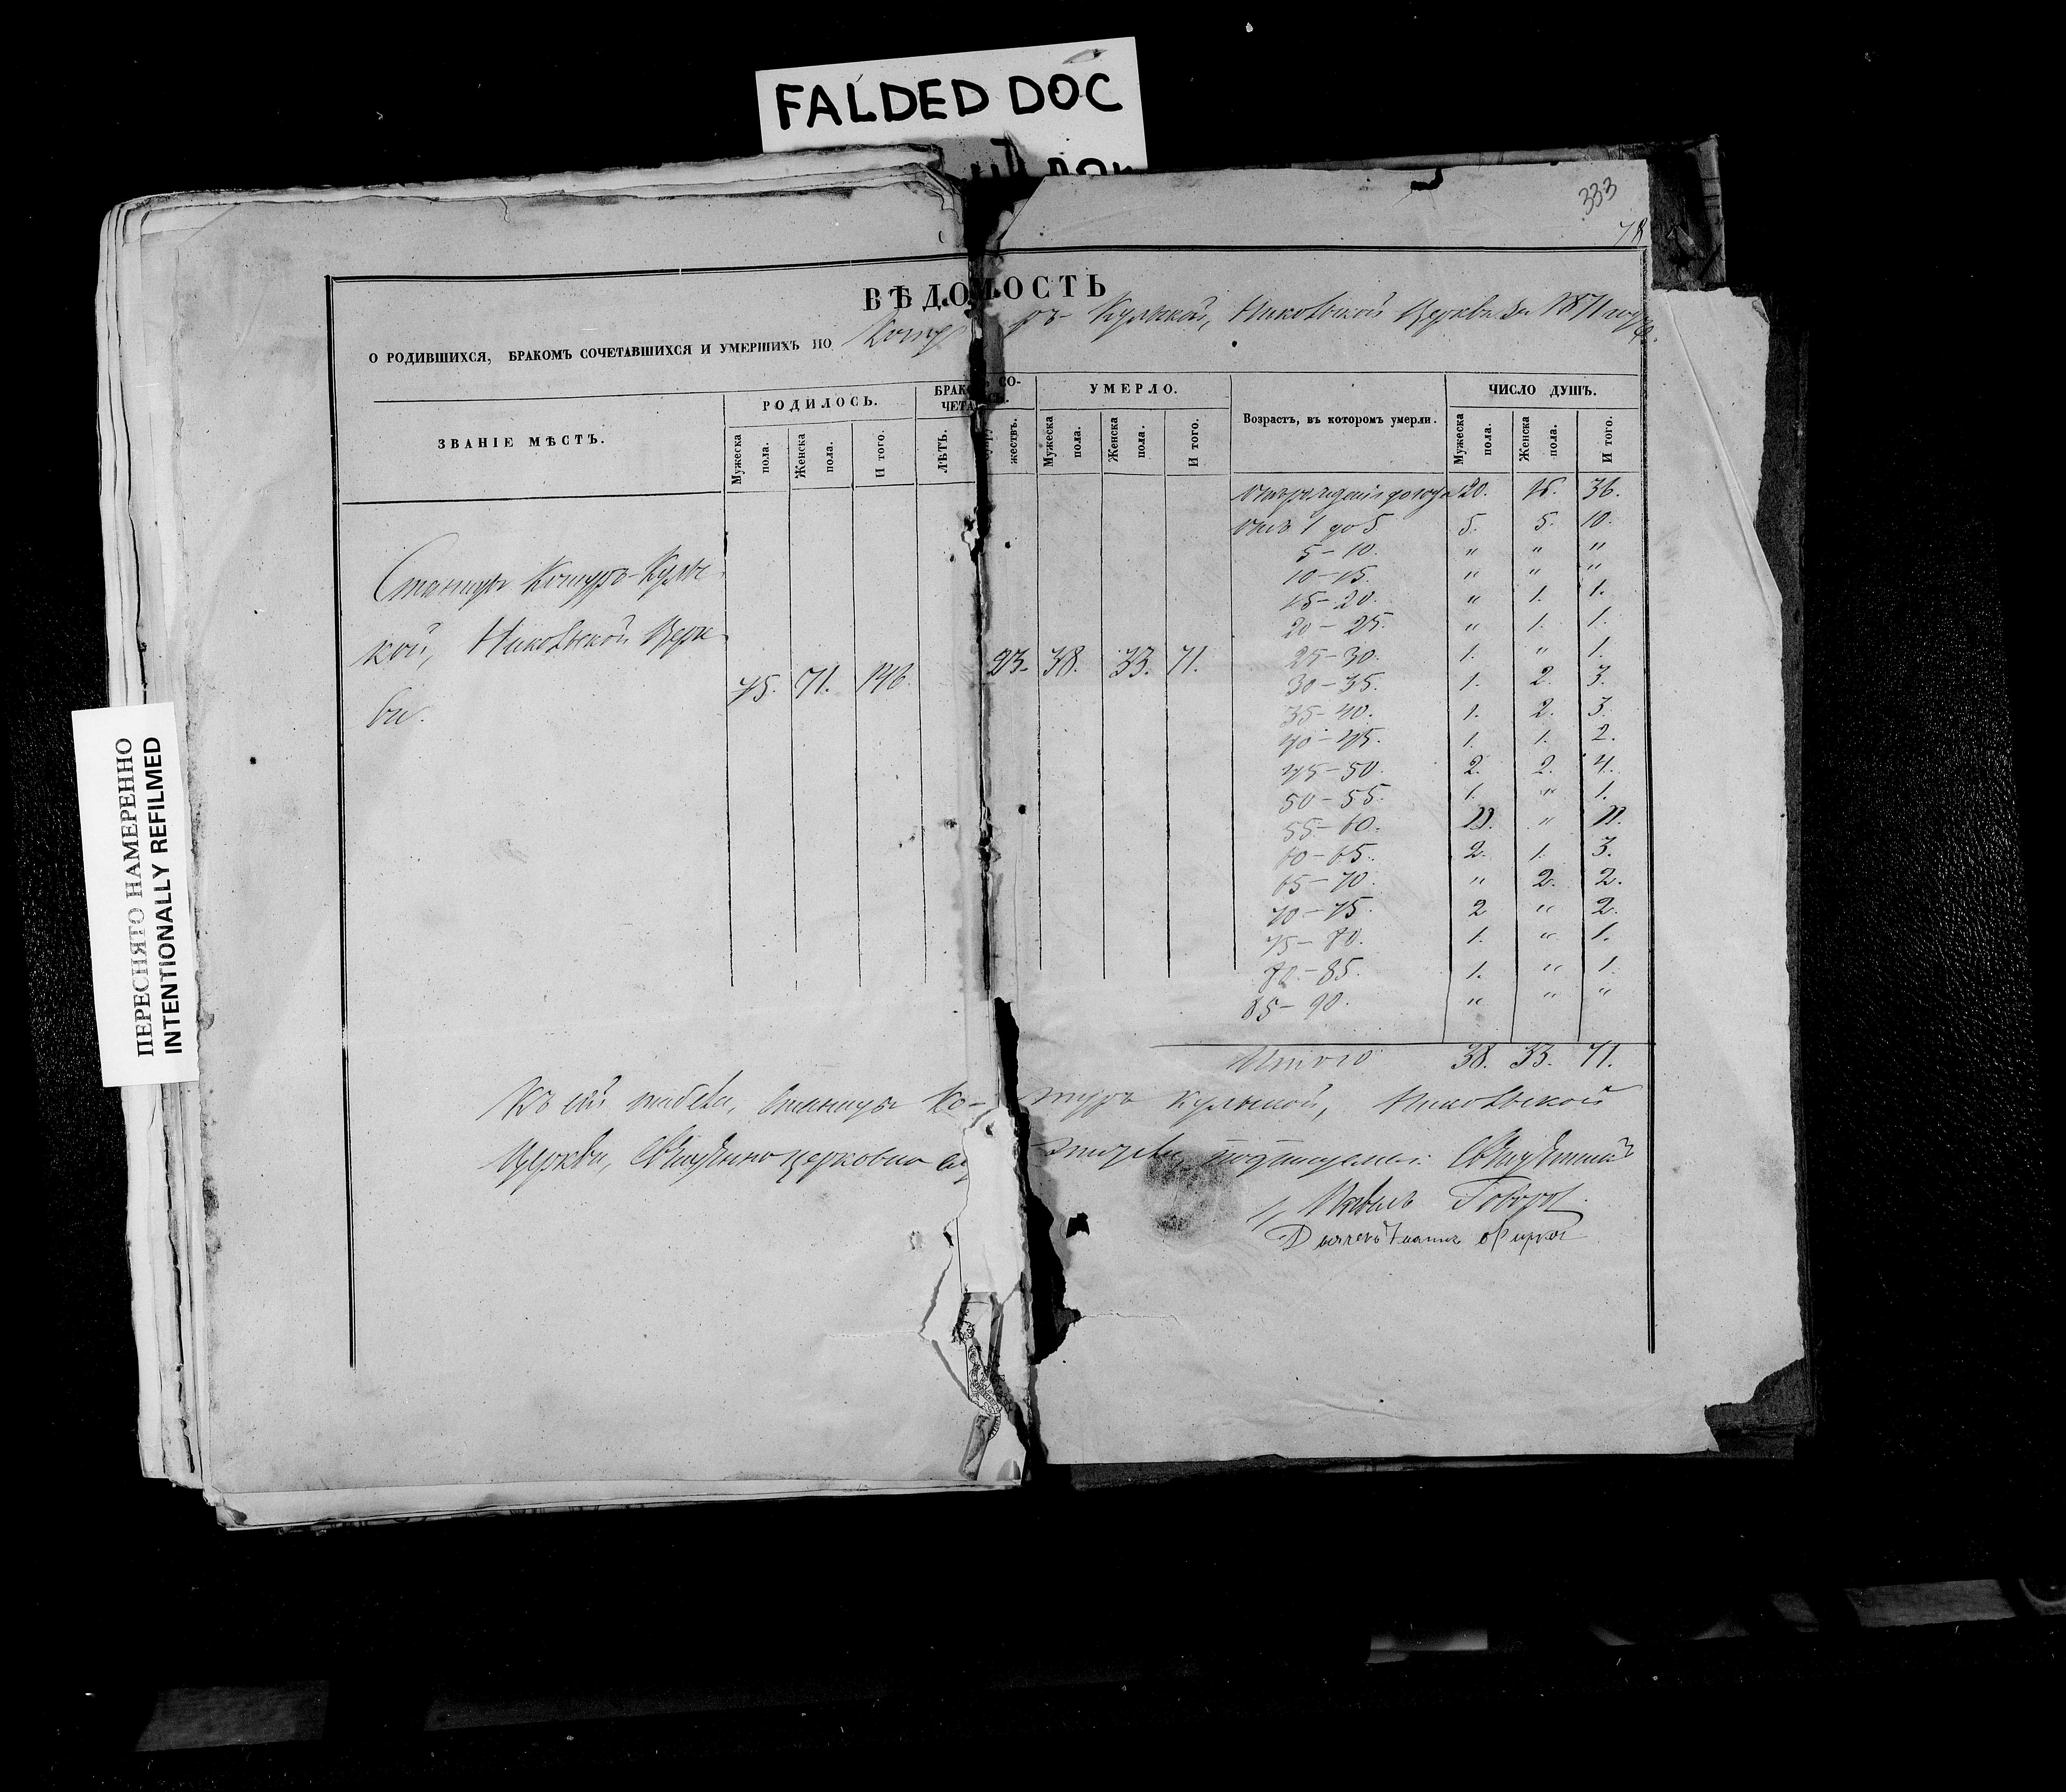 FALDED DOC
333
ВѢДОМОСТЬ
О РОДИВШИХСЯ, БРАКОМЪ СОЧЕТАВШИХСЯ И УМЕРШИХЪ ПО Котуръ Кульской, Николаевской Церкви за 1871 годъ.
ЗВАНІЕ МѢСТЪ.
РОДИЛОСЬ.
Мужеска пола.
Женска пола.
И того.
БРАКО СО-
ЧЕТА СЬ.
ЛѢТЪ.
жествъ.
УМЕРЛО.
Мужеска пола.
Женска пола.
И того.
Возрастъ, въ которомъ умерли.
ЧИСЛО ДУШЪ.
Мужеска пола.
Женска пола.
И того.
Станицы Котуръ-Куль-
кой, Николаевской Церк
ви.
75. 71. 146. 23. 38. 33. 71.
Отъ рожденія до года 20. 16. 36.
Отъ 1 до 5 5. 5. 10.
5-10. " " "
10-15. " " "
15-20. " 1. 1.
20-25. " 1. 1.
25-30. 1. " 1.
30-35. 1. 2. 3.
35-40. 1. 2. 3.
40-45. 1. 1. 2.
45-50. 2. 2. 4.
50-55. 1. " 1.
55-60. "
60-65. 2. 1. 3.
65-70. " 2. 2.
70-75. 2 " 2.
75-80. 1. " 1.
80-85. 1. " 1.
85-90. " " "
Итого 38. 33. 71.
Къ сей табели, Станицы Ко- туръ Кульской, Николаевской
Церкви, Священно церковно служители подписуемся: Священникъ
Павелъ Говоровъ
Дьячекъ Іоаннъ
ПЕРЕСНЯТО НАМЕРЕННО
INTENTIONALLY REFILMED